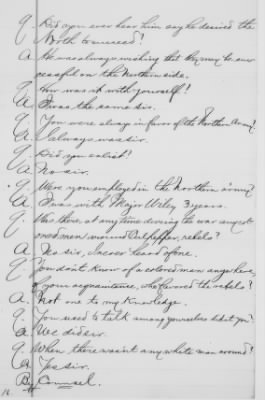 Q. Did you ever hear him say he desired the
North to succeed?
A. He was always wishing that they may be suc-
cessful on the Northern side.
Q. How was it with yourself?
A. I was the same sir.
Q. You were always in favor of the Northern Army?
A. I always was sir.
Q. Did you enlist?
A. No sir.
Q. Were you employed in the Northern army?
A. I was with Major Wiley 3 years.
Q. Was there, at any time during the war any col-
ored men around Culpepper, rebels?
A. No sir, I never heard of one.
Q. You don't know of a colored man anywhere,
of your acquaintance, who favored the rebels?
A. Not one to my knowledge.
Q. You used to talk among yourselves didn't you?
A. We did sir.
Q. When there wasn't any white man around?
A. Yes sir.
By Counsel.